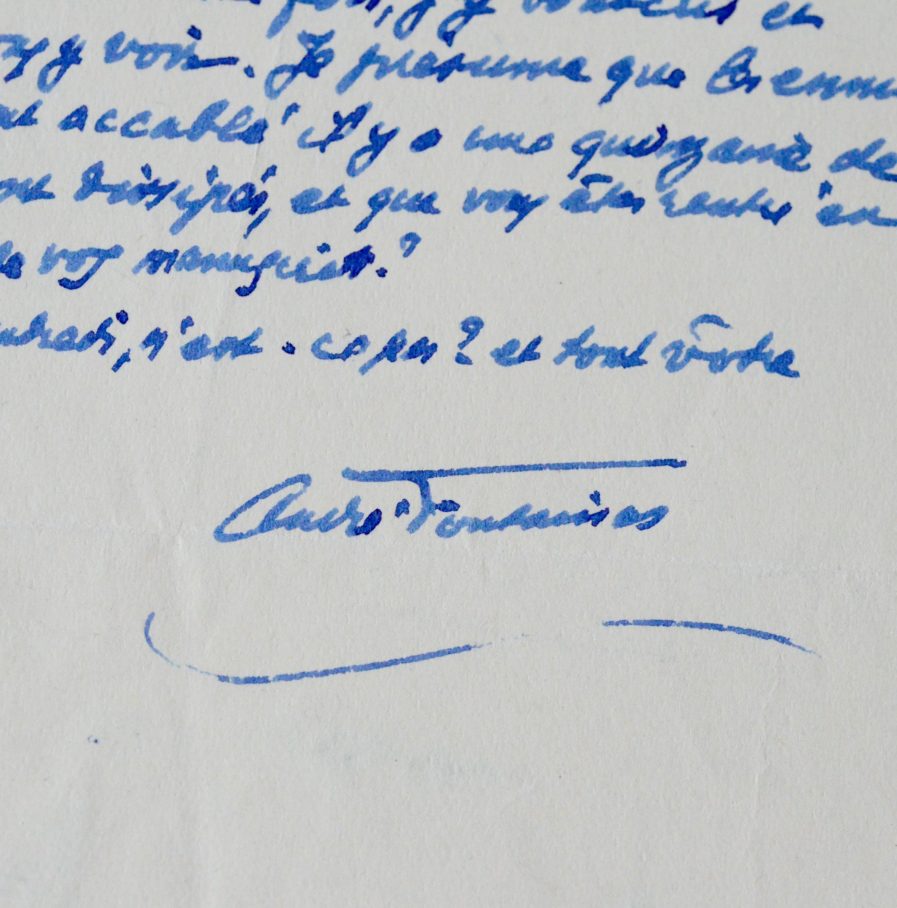 fois, j'y et
y voir. Je présume que les ennui
accablé il y a une quinzaine de
dissipés, et que vous êtes rentré en
de vos manuscrits?
ndredi, n'est-ce pas? et tout vôtre
André Fontainas